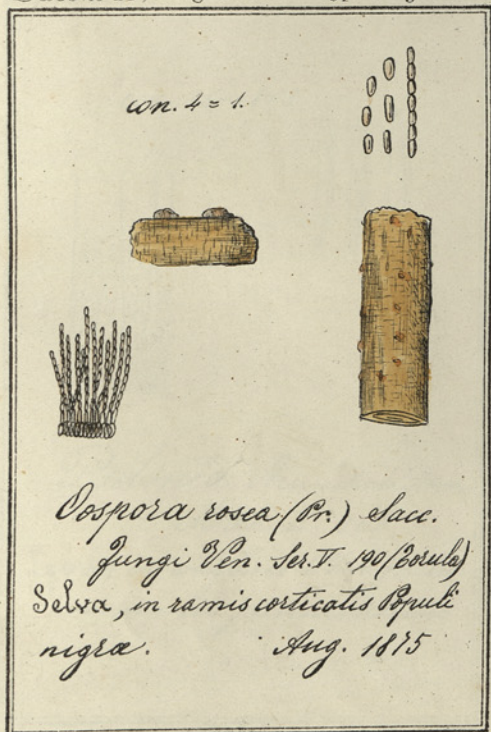 con. 4 = 1.
Oospora rosea (Pr.) Sacc.
Fungi Ven. Ser. V. 190 (Torula)
Selva, in ramis corticatis Populi
nigræ. Aug. 1875